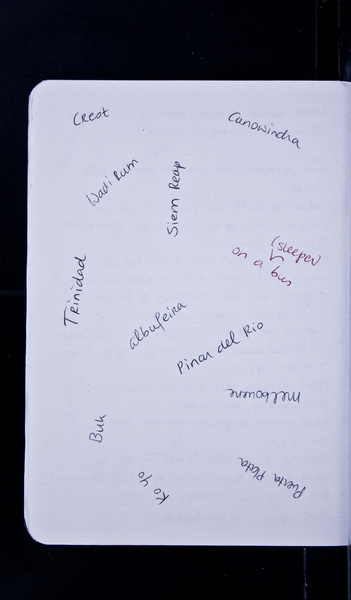 Crest
Canowindra
Wadi Rum
Siem Reap
(sleeper
on a bus
Trinidad
albufeira
Pinar del Rio
Melbourne
Buk
Puerta Plata